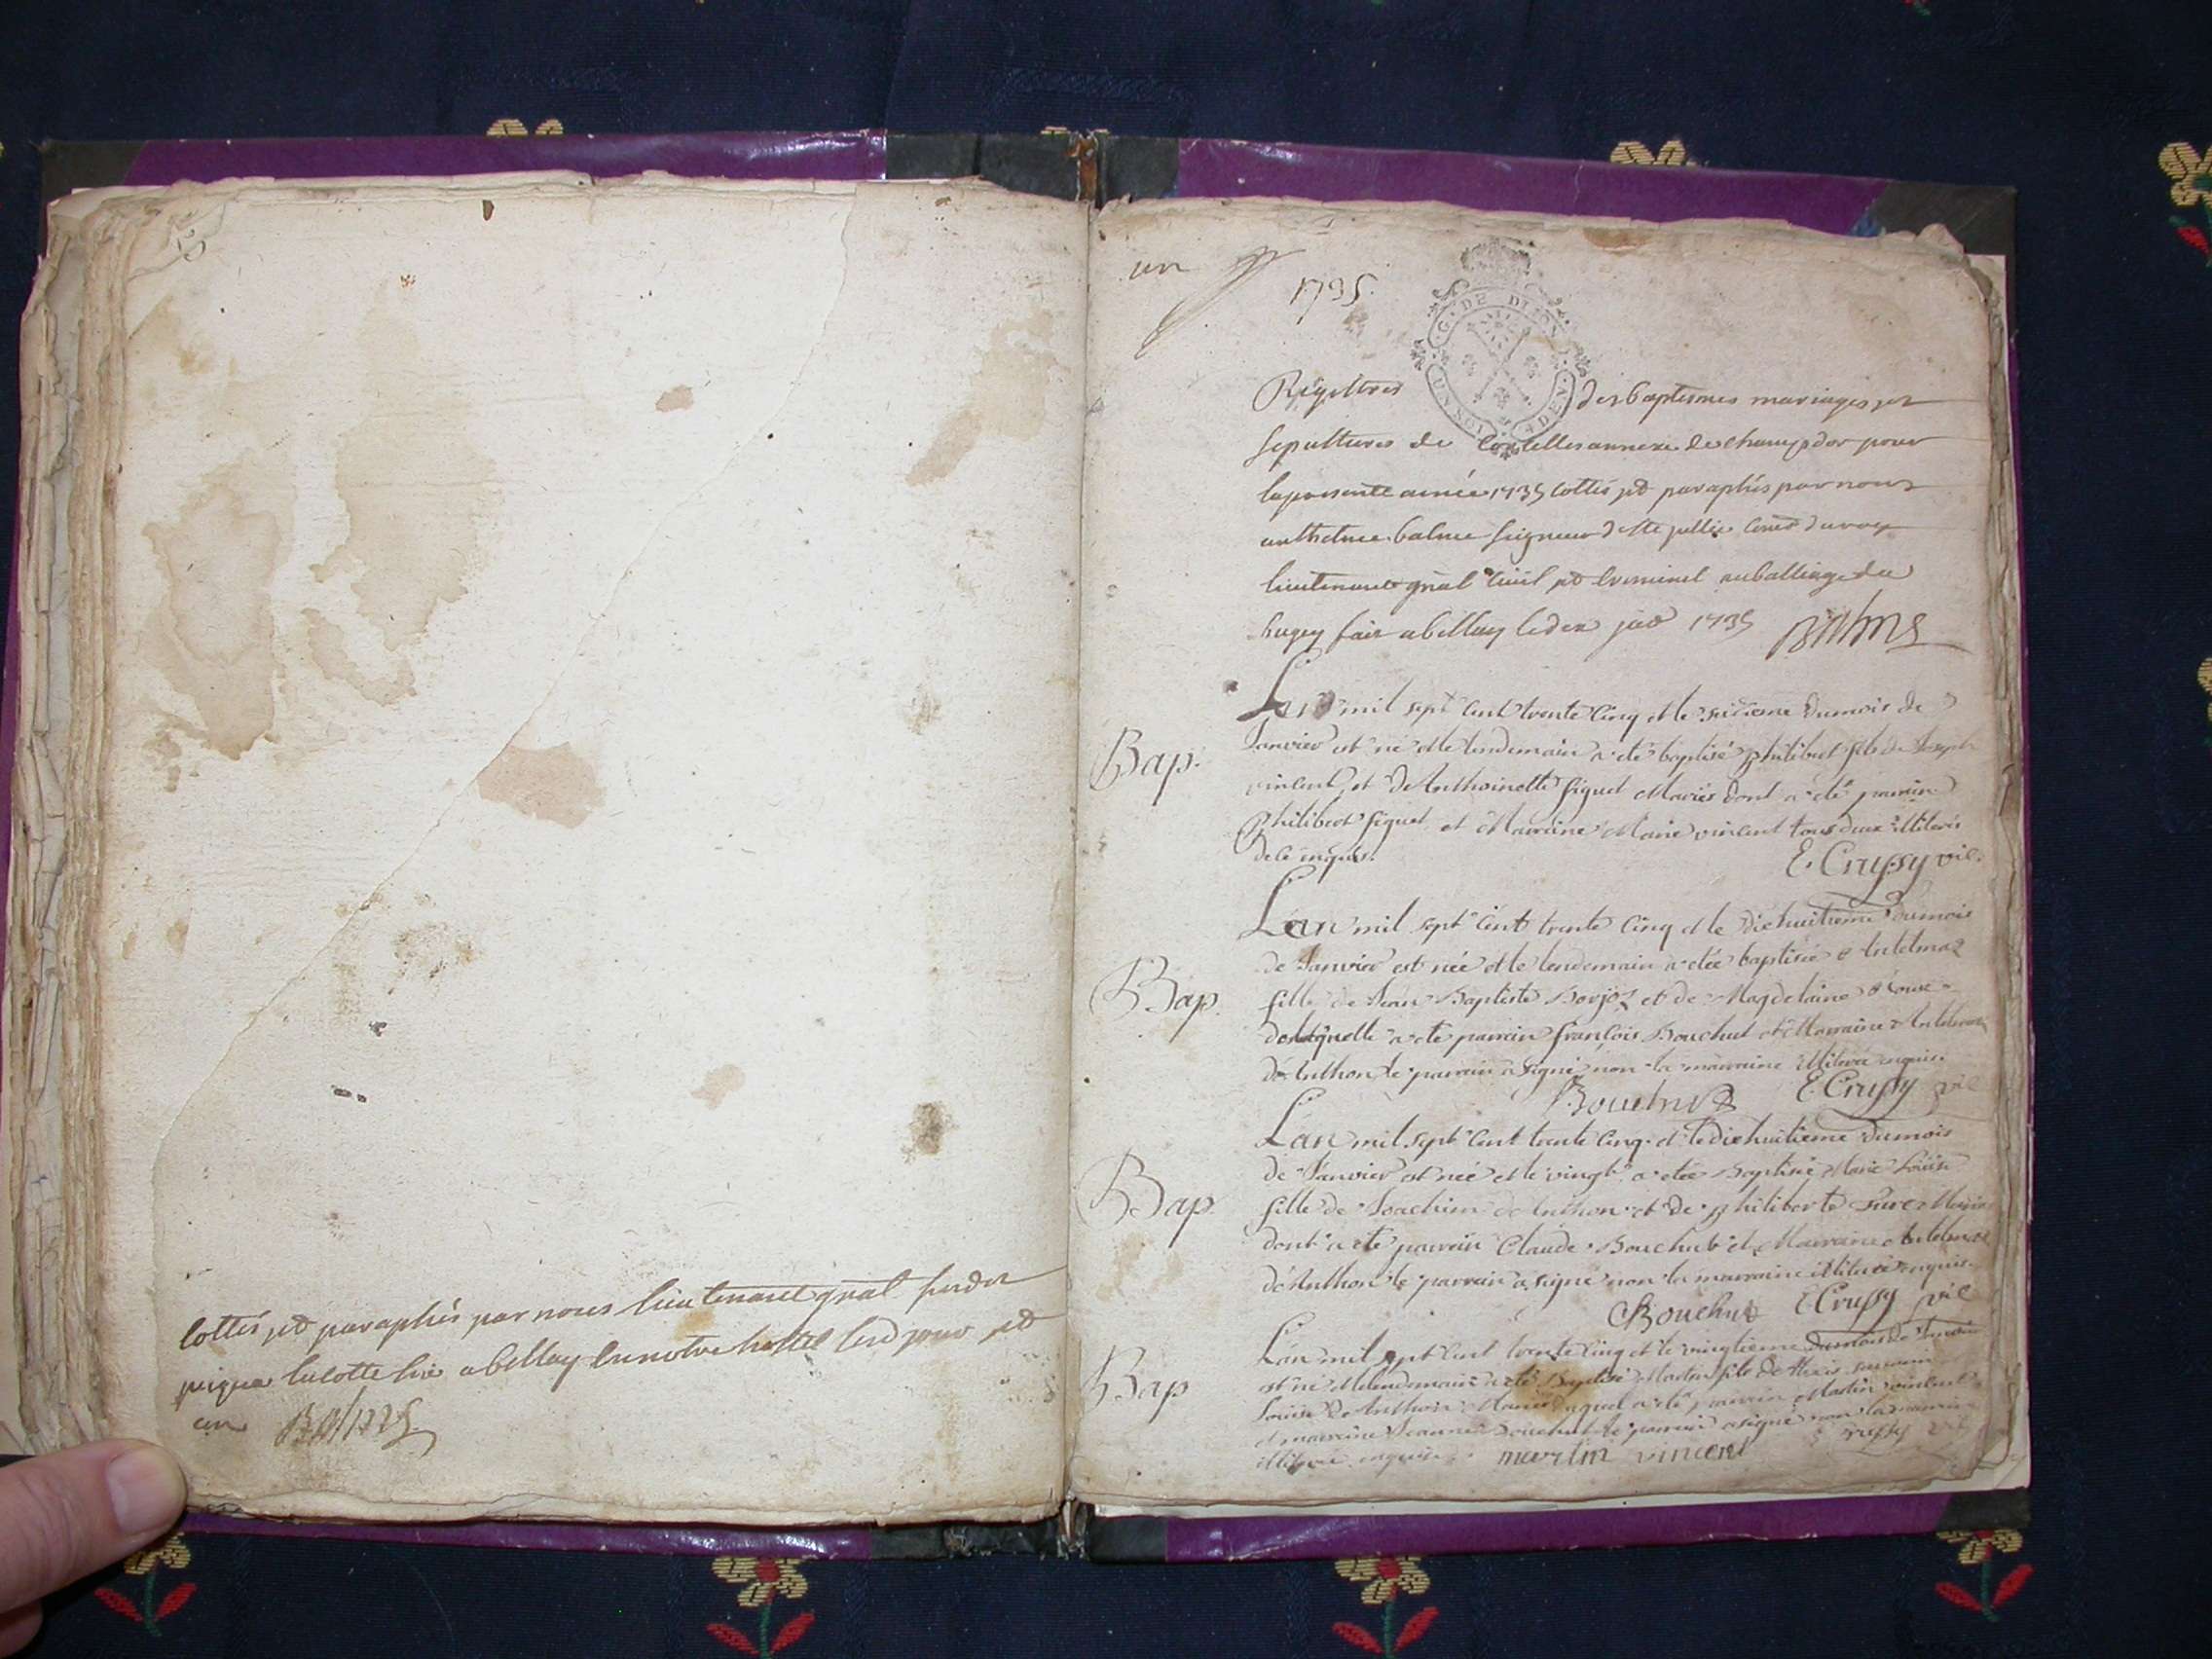 cottés et paraphés par nous lieutenant gñal susdit
jusqua la cotte six a belley en notre hostel lesd jour et
an Balme
un
1735.
G. DE DIJON
UN SOL 4 DEN.
Registres des baptesmes mariages et
sepultures de Corcelles annexe de champdor pour
la presente année 1735 cottés et paraphés par nous
anthelme balme seigneur de Ste jullie Conser du roy
lieutenant gñal civil et criminel au balliage du
bugey fait a belley le deux 1735 Balme
Lan mil sept cent trente cinq et le sixieme du mois de
Bap.
Janvier est né et le lendemain a été baptisé philibert fils de Joseph
vincent et de Anthoinette figuet Mariés dont a été parrain
Philibert figuet et Marraine Marie vincent tous deux illiterés
de ce enquis. E. Crussy vic.
Lan mil sept cent trente cinq et le dixhuitieme du mois
de Janvier est née et le lendemain a étée baptisée Antelmaz
Bap.
fille de Jean Baptiste Borjoz et de Magdelaine
de laquelle a été parrain françois Bouchut et Marraine Antelmaz
de Anthon le parrain a signé non la marraine illiterée enquise.
Bouchut E. Crussy vic
Lan mil sept cent trente cinq et le dixhuitieme du mois
de Janvier est née et le vingt a étée Baptisée Marie Louise
Bap.
fille de Joachim de Anthon et de philiberte
dont a été parrain Claude Bouchut et Marraine Antelmaz
de Anthon le parrain a signé non la marraine illiterée enquise.
Bouchut E Crussy vic
Lan mil sept cent trente cinq et le vingtieme du mois de Janvier
Bap
est né et le lendemain a été Baptisé Martin fils de
Louise de Anthon Mariés duquel a été parrain Martin vincent
et marraine Jeanne Bouchut le parrain a signé non la marraine
illiterée enquise. martin vincent E Crussy vic